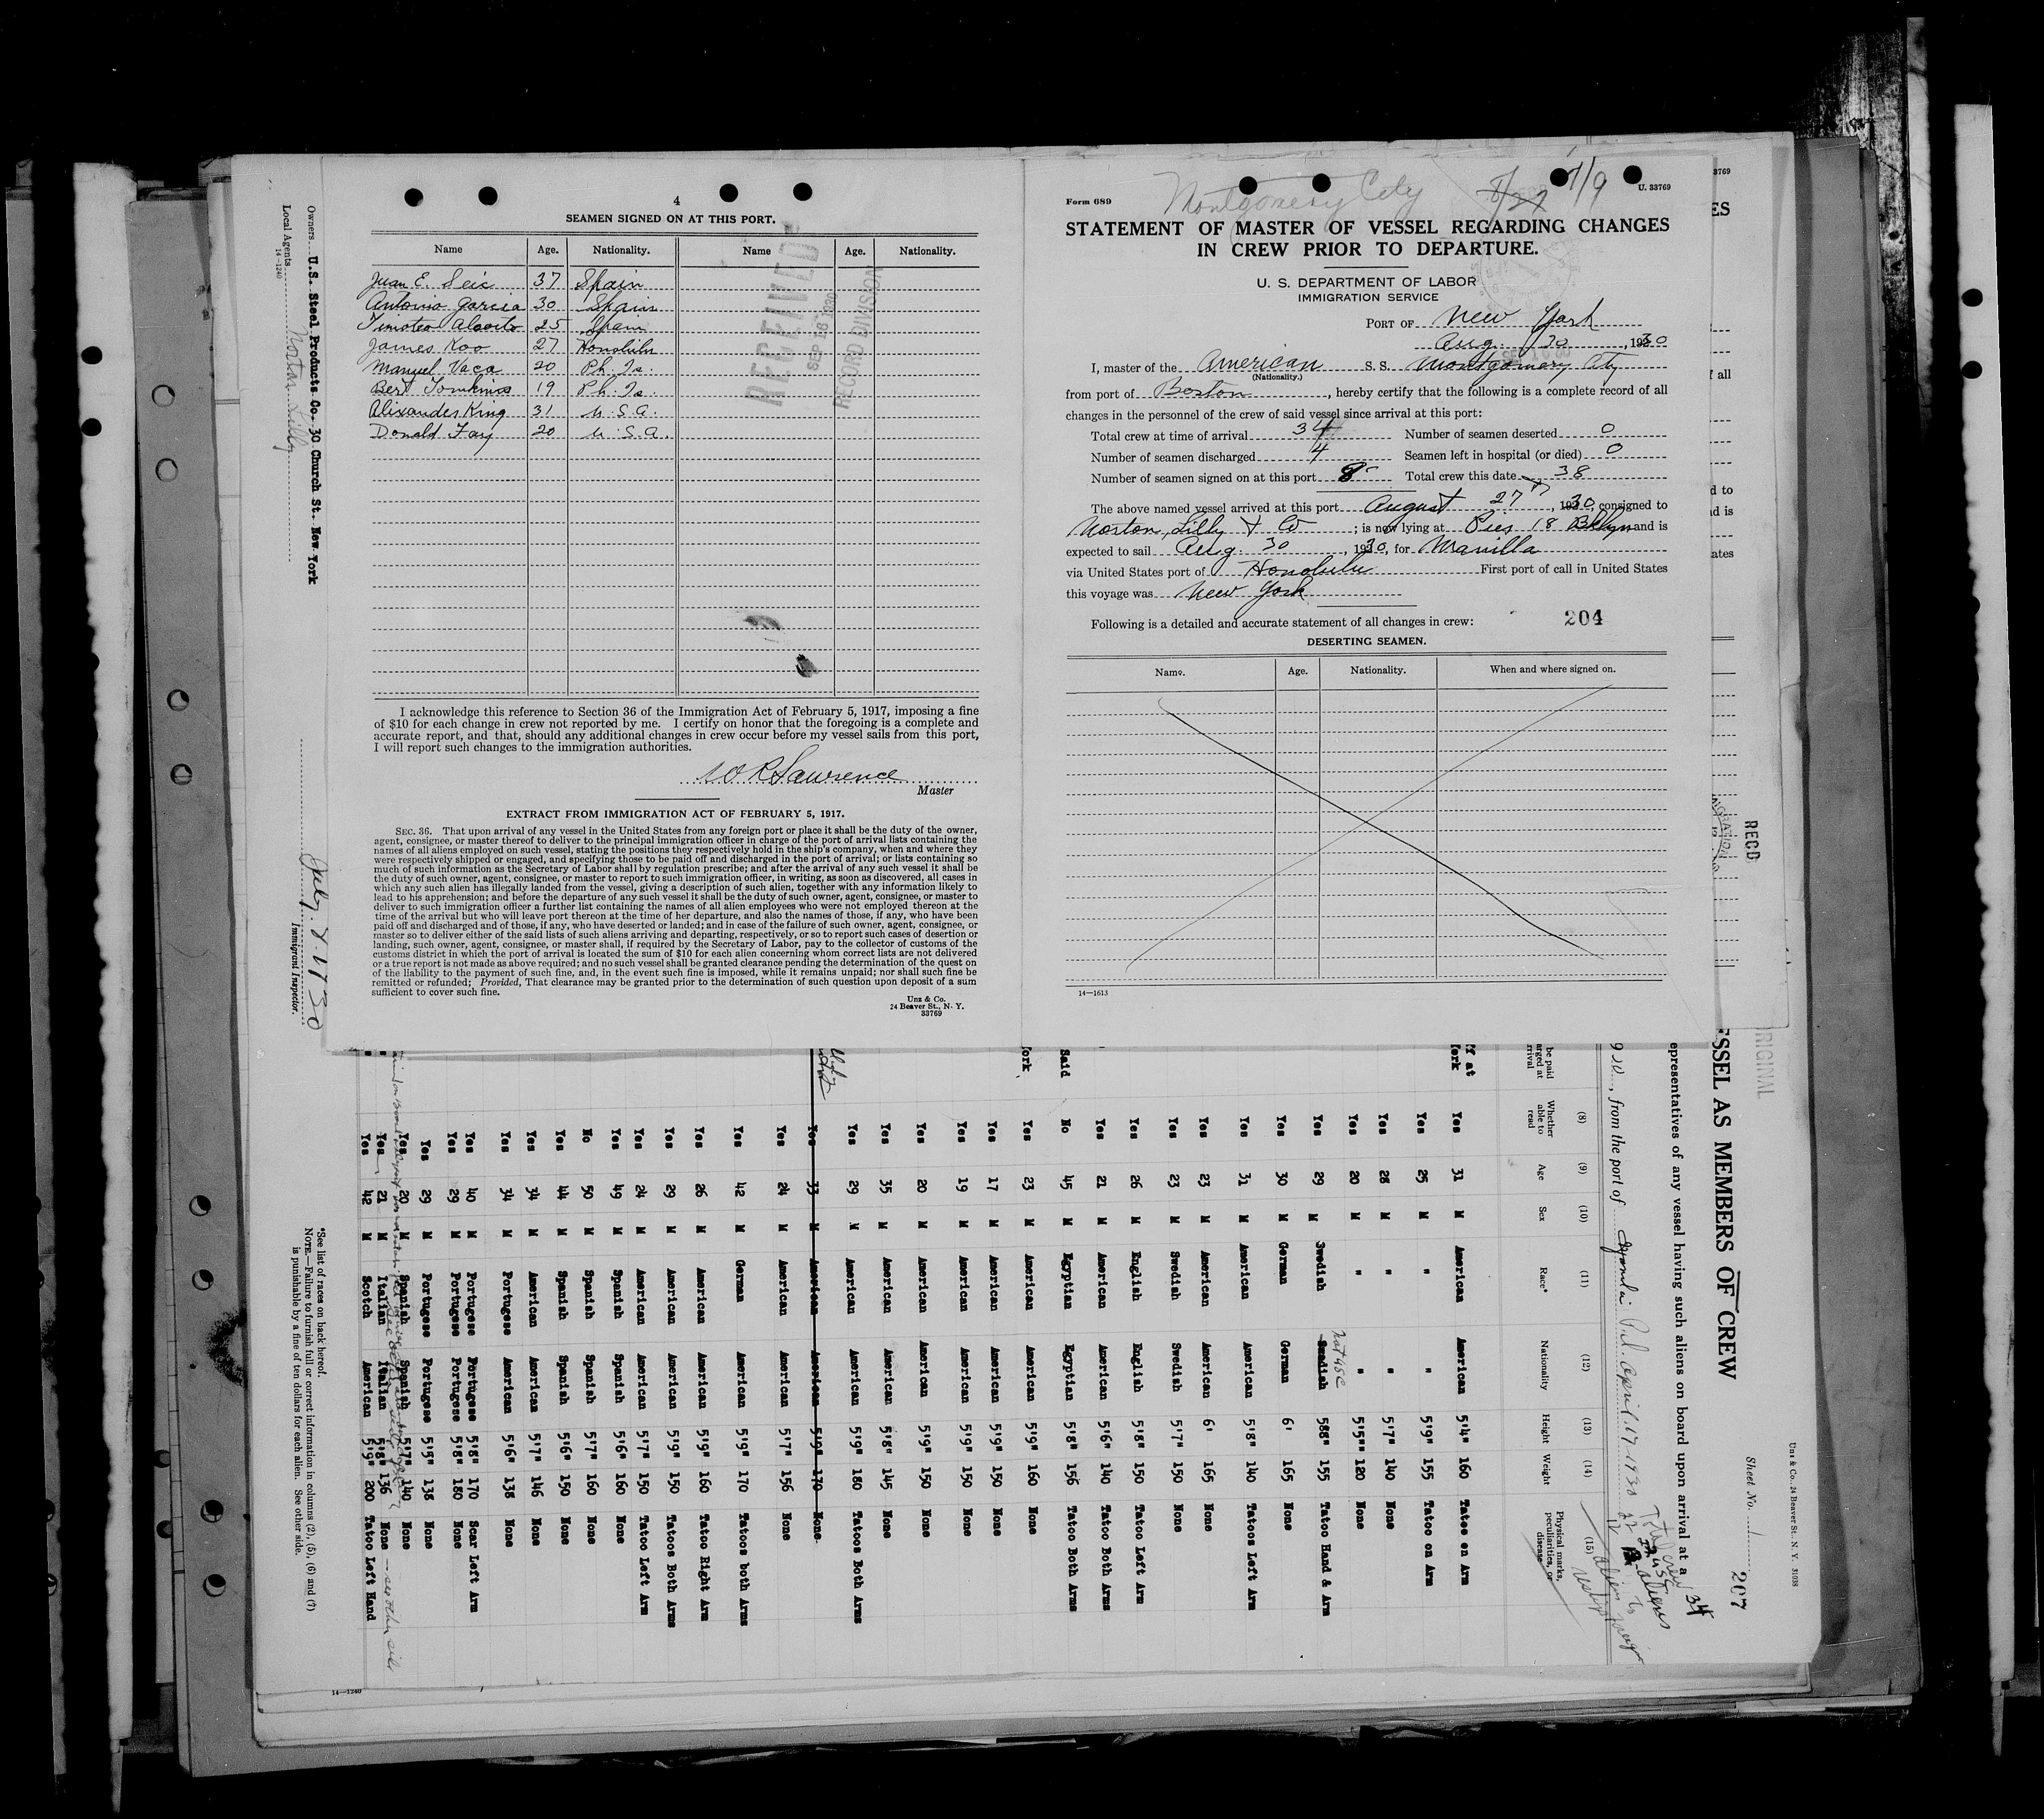 4
SEAMEN SIGNED ON AT THIS PORT.
Name Age. Nationality. Name Age. Nationality.
Juan E. Seic 37 Spain
Antonio Garcia 30 Spain
Timoteo 25 Spain
James Koo 27 Honolulu
Manuel Vaca 20 Ph. Is.
Bert Tomkins 19 Ph. Is.
Alixander King 31 U.S.A.
Donald Fay 20 U.S.A.
RECEIVED
SEP 16 1930
RECORD DIVISION
I acknowledge this reference to Section 36 of the Immigration Act of February 5, 1917, imposing a fine
of $10 for each change in crew not reported by me. I certify on honor that the foregoing is a complete and
accurate report, and that, should any additional changes in crew occur before my vessel sails from this port,
I will report such changes to the immigration authorities.
W R Lawrence
Master
EXTRACT FROM IMMIGRATION ACT OF FEBRUARY 5, 1917.
SEC. 36. That upon arrival of any vessel in the United States from any foreign port or place it shall be the duty of the owner,
agent, consignee, or master thereof to deliver to the principal immigration officer in charge of the port of arrival lists containing the
names of all aliens employed on such vessel, stating the positions they respectively hold in the ship's company, when and where they
were respectively shipped or engaged, and specifying those to be paid off and discharged in the port of arrival; or lists containing so
much of such information as the Secretary of Labor shall by regulation prescribe; and after the arrival of any such vessel it shall be
the duty of such owner, agent, consignee, or master to report to such immigration officer, in writing, as soon as discovered, all cases in
which any such alien has illegally landed from the vessel, giving a description of such alien, together with any information likely to
lead to his apprehension; and before the departure of any such vessel it shall be the duty of such owner, agent, consignee, or master to
deliver to such immigration officer a further list containing the names of all alien employees who were not employed thereon at the
time of the arrival but who will leave port thereon at the time of her departure, and also the names of those, if any, who have been
paid off and discharged and of those, if any, who have deserted or landed; and in case of the failure of such owner, agent, consignee, or
master so to deliver either of the said lists of such aliens arriving and departing, respectively, or so to report such cases of desertion or
landing, such owner, agent, consignee, or master shall, if required by the Secretary of Labor, pay to the collector of customs of the
customs district in which the port of arrival is located the sum of $10 for each alien concerning whom correct lists are not delivered
or a true report is not made as above required; and no such vessel shall be granted clearance pending the determination of the quest on
of the liability to the payment of such fine, and, in the event such fine is imposed, while it remains unpaid; nor shall such fine be
remitted or refunded; Provided, That clearance may be granted prior to the determination of such question upon deposit of a sum
sufficient to cover such fine.
Unz & Co.
24 Beaver St., N. Y.
33769
Montgomery City
8/27 7/9
Form 689
U. 33769
STATEMENT OF MASTER OF VESSEL REGARDING CHANGES
IN CREW PRIOR TO DEPARTURE.
U. S. DEPARTMENT OF LABOR
IMMIGRATION SERVICE
PORT OF New York
Aug. 30, 1930
I, master of the American S. S. Montgomery City
(Nationality.)
from port of Boston, hereby certify that the following is a complete record of all
changes in the personnel of the crew of said vessel since arrival at this port:
Total crew at time of arrival 34 Number of seamen deserted 0
Number of seamen discharged 4 Seamen left in hospital (or died) 0
Number of seamen signed on at this port 8 Total crew this date 38
The above named vessel arrived at this port August 27, 1930, consigned to
Norton, Lilly & Co; is now lying at Pier 18 Bklyn and is
expected to sail Aug. 30, 1930, for Manilla
via United States port of Honolulu First port of call in United States
this voyage was New York
Following is a detailed and accurate statement of all changes in crew: 204
DESERTING SEAMEN.
Name. Age. Nationality. When and where signed on.
14—1613
Owners U.S. Steel Products Co. 30 Church St. New York
Local Agents Norton Lilly
14-1240
July 8 1930
Immigrant Inspector.
RECD
ORIGINAL
Unz & Co., 24 Beaver St., N. Y. 31038
Sheet No. 1 207
SSEL AS MEMBERS OF CREW
epresentatives of any vessel having such aliens on board upon arrival at a
from the port of April 17 1930
Total crew 34
(8) (9) (10) (11) (12) (13) (14) (15)
Whether able to read Age Sex Race* Nationality Height Weight Physical marks, peculiarities, or disease
Yes 31 M American American 5'4" 160 Tatoo on Arm
Yes 25 M " " 5'9" 155 Tatoo on Arm
Yes 28 M " " 5'7" 140 None
Yes 20 M " " 5'5" 120 None
Yes 29 M Swedish Swedish 588" 155 Tatoo Hand & Arm
Yes 30 M German German 6' 165 None
Yes 31 M American American 5'8" 140 Tatoos Left Arm
Yes 23 M American American 6' 165 None
Yes 23 M Swedish Swedish 5'7" 150 None
Yes 26 M English English 5'8" 150 Tatoo Left Arm
Yes 21 M American American 5'6" 140 Tatoo Both Arms
Said No 45 M Egyptian Egyptian 5'8" 156 Tatoo Both Arms
ork Yes 23 M American American 5'9" 160 None
Yes 17 M American American 5'9" 150 None
Yes 19 M American American 5'9" 150 None
Yes 20 M American American 5'9" 150 None
Yes 35 M American American 5'8" 145 None
Yes 29 M American American 5'9" 180 Tatoos Both Arms
Yes 33 M American American 5'9" 170 None
Yes 24 M American American 5'7" 156 None
Yes 42 M German American 5'9" 170 Tatoos both Arms
Yes 26 M American American 5'9" 160 Tatoo Right Arm
Yes 29 M American American 5'9" 150 Tatoos Both Arms
Yes 24 M American American 5'7" 150 Tatoo Left Arm
Yes 49 M Spanish Spanish 5'6" 160 None
No 50 M Spanish Spanish 5'7" 160 None
Yes 44 M Spanish Spanish 5'6" 150 None
Yes 34 M American American 5'7" 146 None
Yes 34 M Portugese American 5'6" 138 None
Yes 40 M Portugese Portugese 5'8" 170 Scar Left Arm
Yes 29 M Portugese Portugese 5'8" 180 None
Yes 29 M Portugese Portugese 5'5" 138 None
Yes 20 M Spanish Spanish 5'7" 140 None
Yes 21 M Italian Italian 5'8" 136 None
Yes 42 M Scotch American 5'9" 200 Tatoo Left Hand
*See list of races on back hereof.
NOTE.—Failure to furnish full or correct information in columns (2), (5), (6) and (7)
is punishable by a fine of ten dollars for each alien. See other side.
14—1240